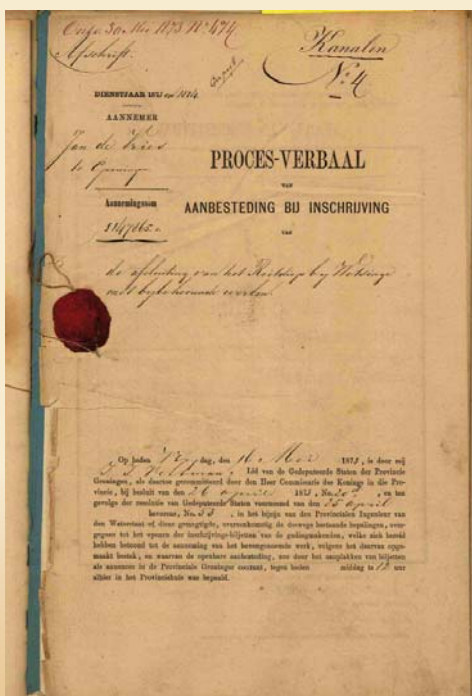 Ontv. 30 Mei 1873 No 474
Afschrift.
Kanalen
No. 4
DIENSTJAAR 1873 en 1874
AANNEMER
Jan de Vries
te Groningen
Aannemingssom
PROCES-VERBAAL
VAN
AANBESTEDING BIJ INSCHRIJVING
VAN
de afsluiting van het Reitdiep bij
met bijbehorende werken.
Op heden dag, den 16 Mei 1873, is door mij
Lid van de Gedeputeerde Staten der Provincie
Groningen, als daartoe gecommitteerd door den Heer Commissaris des Konings in die Pro-
vincie, bij besluit van den 26 april 1873, en ten
gevolge der resolutie van Gedeputeerde Staten voornoemd van den 25 april
bevorens, No. , in het bijzijn van den Provincialen Ingenieur van
den Waterstaat of diens gemagtigde, overeenkomstig de deswege bestaande bepalingen, over-
gegaan tot het openen der inschrijvings-biljetten van de gadingmakenden, welke zich bereid
hebben betoond tot de aanneming van het bovengenoemde werk, volgens het daarvan opge-
maakt bestek, en waarvan de openbare aanbesteding, zoo door het aanplakken van biljetten
als annonce in de Provinciale Groninger courant, tegen heden middag te 12 uur
alhier in het Provinciehuis was bepaald.